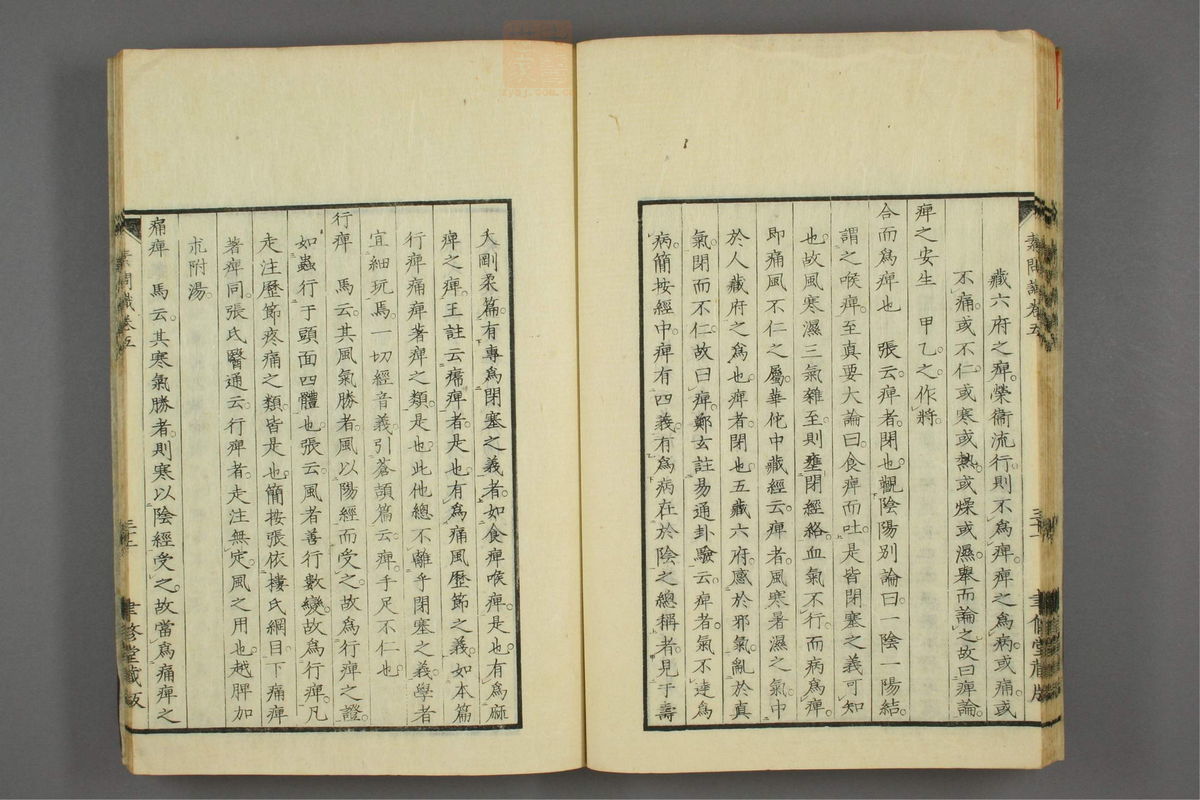 藏六府之痺。榮衞流行則不爲痺。痺之爲病。或痛。或
不痛。或不仁。或寒。或熱。或燥。或濕。舉而論之。故曰痺論。
痺之安生　甲乙。之。作將。
合而爲痺也　張云。痺者。閉也。觀陰陽別論曰。一陰一陽結。
謂之喉痺。至眞要大論曰。食痺而吐。是皆閉塞之義可知
也。故風寒濕三氣雜至。則壅閉經絡。血氣不行。而病爲痺。
即痛風不仁之屬。華佗中藏經云。痺者。風寒暑濕之氣。中
於人藏府之爲也。痺者。閉也。五藏六府。感於邪氣。亂於眞
氣。閉而不仁。故曰痺。鄭玄註易通卦驗云。痺者。氣不達爲
病。簡按經中痺有四義。有爲病在於陰之總稱者。見于壽
夭剛柔篇。有專爲閉塞之義者。如食痺喉痺。是也。有爲麻
痺之痺。王註云。㾪痺者。是也。有爲痛風歷節之義。如本篇
行痺痛痺著痺之類。是也。此他總不離乎閉塞之義。學者
宜細玩焉。一切經音義。引蒼頡篇云。痺。手足不仁也
行痺　馬云。其風氣勝者。風以陽經而受之。故爲行痺之證。
如蟲行于頭面四體也。張云。風者善行數變。故爲行痺。凡
走注歷節疼痛之類。皆是也。簡按張依樓氏綱目。下痛痺
著痺同。張氏醫通云。行痺者。走注無定。風之用也。越脾加
朮附湯。
痛痺　馬云。其寒氣勝者。則寒以陰經受之。故當爲痛痺之
素問識卷五
三十一
聿修堂藏版
素問識卷五
聿修堂藏版